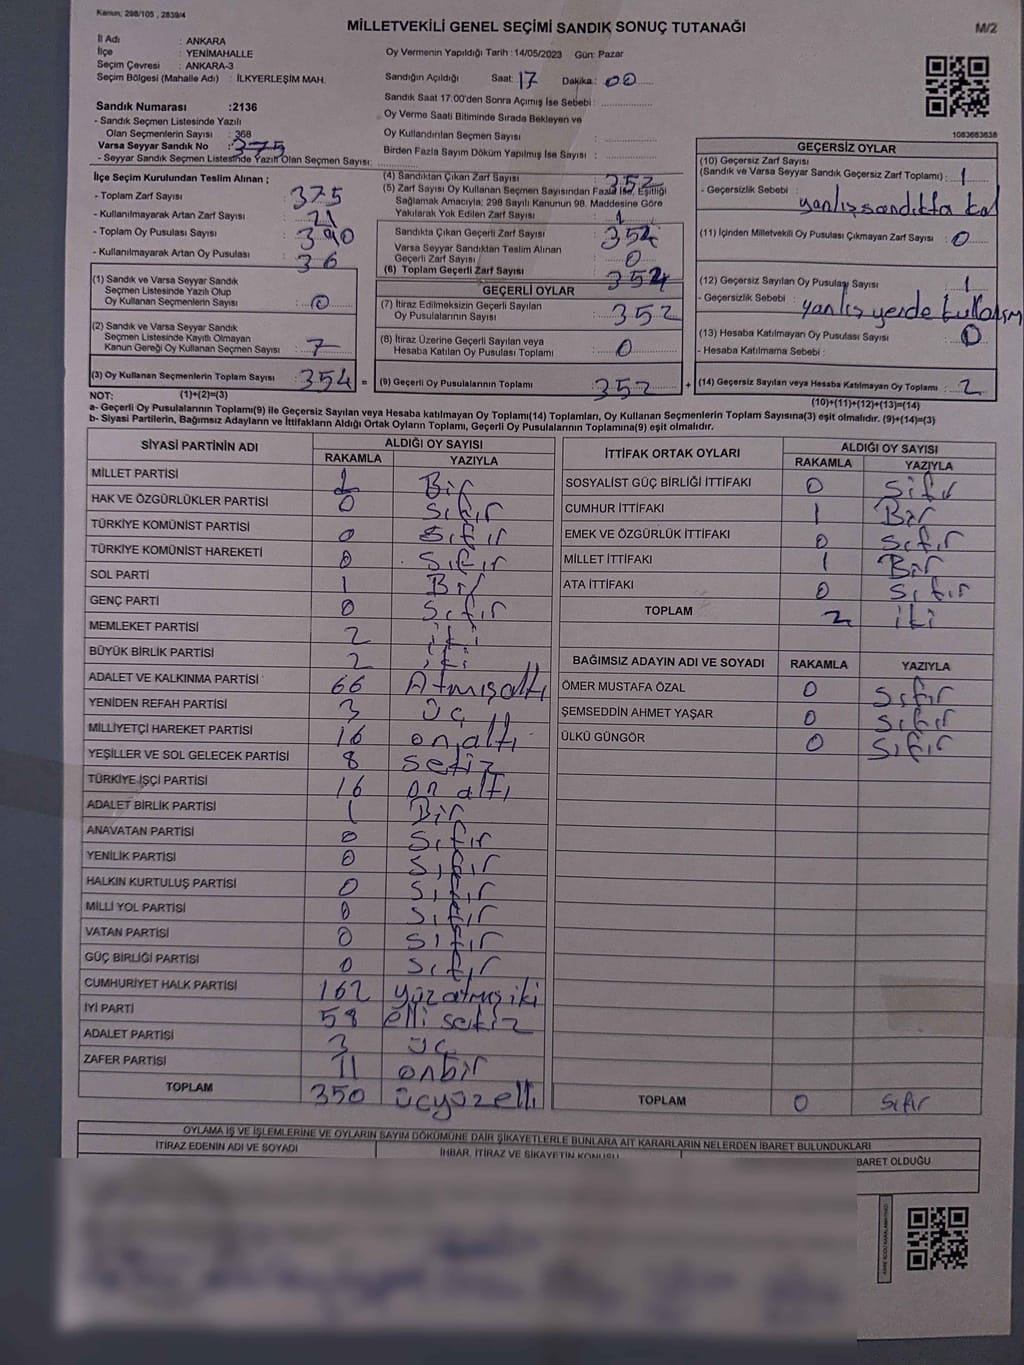 Kanun: 298/105 , 2839/4
MİLLETVEKİLİ GENEL SEÇİMİ SANDIK SONUÇ TUTANAĞI
M/2
İl Adı : ANKARA
İlçe : YENİMAHALLE
Seçim Çevresi : ANKARA-3
Seçim Bölgesi (Mahalle Adı) : İLKYERLEŞİM MAH.
Sandık Numarası :2136
- Sandık Seçmen Listesinde Yazılı
Olan Seçmenlerin Sayısı : 368
Varsa Seyyar Sandık No : 375
- Seyyar Sandık Seçmen Listesinde Yazılı Olan Seçmen Sayısı:
Oy Vermenin Yapıldığı Tarih :14/05/2023 Gün: Pazar
Sandığın Açıldığı Saat: 17 Dakika: 00
Sandık Saat 17:00'den Sonra Açımış İse Sebebi :
Oy Verme Saati Bitiminde Sırada Bekleyen ve
Oy Kullandırılan Seçmen Sayısı :
Birden Fazla Sayım Döküm Yapılmış İse Sayısı :
1083683838
İlçe Seçim Kurulundan Teslim Alınan ;
- Toplam Zarf Sayısı : 375
- Kullanılmayarak Artan Zarf Sayısı : 21
- Toplam Oy Pusulası Sayısı : 390
- Kullanılmayarak Artan Oy Pusulası : 36
(1) Sandık ve Varsa Seyyar Sandık
Seçmen Listesinde Yazılı Olup
Oy Kullanan Seçmenlerin Sayısı : 0
(2) Sandık ve Varsa Seyyar Sandık
Seçmen Listesinde Kayıtlı Olmayan
Kanun Gereği Oy Kullanan Seçmen Sayısı : 7
(3) Oy Kullanan Seçmenlerin Toplam Sayısı : 354 =
(1)+(2)=(3)
(4) Sandıktan Çıkan Zarf Sayısı : 352
(5) Zarf Sayısı Oy Kullanan Seçmen Sayısından Fazla İse, Eşitliği
Sağlamak Amacıyla; 298 Sayılı Kanunun 98. Maddesine Göre
Yakılarak Yok Edilen Zarf Sayısı : 1
Sandıkta Çıkan Geçerli Zarf Sayısı : 354
Varsa Seyyar Sandıktan Teslim Alınan
Geçerli Zarf Sayısı : 0
(6) Toplam Geçerli Zarf Sayısı : 354
GEÇERLİ OYLAR
(7) İtiraz Edilmeksizin Geçerli Sayılan
Oy Pusulalarının Sayısı : 352
(8) İtiraz Üzerine Geçerli Sayılan veya
Hesaba Katılan Oy Pusulası Toplamı : 0
(9) Geçerli Oy Pusulalarının Toplamı : 352 +
GEÇERSİZ OYLAR
(10) Geçersiz Zarf Sayısı
(Sandık ve Varsa Seyyar Sandık Geçersiz Zarf Toplamı) : 1
- Geçersizlik Sebebi : yanlış sandıkta kal
(11) İçinden Milletvekili Oy Pusulası Çıkmayan Zarf Sayısı : 0
(12) Geçersiz Sayılan Oy Pusulası Sayısı : 1
- Geçersizlik Sebebi : yanlış yerde kullanım
(13) Hesaba Katılmayan Oy Pusulası Sayısı : 0
- Hesaba Katılmama Sebebi :
(14) Geçersiz Sayılan veya Hesaba Katılmayan Oy Toplamı : 2
(10)+(11)+(12)+(13)=(14)
NOT:
a- Geçerli Oy Pusulalarının Toplamı(9) ile Geçersiz Sayılan veya Hesaba katılmayan Oy Toplamı(14) Toplamları, Oy Kullanan Seçmenlerin Toplam Sayısına(3) eşit olmalıdır. (9)+(14)=(3)
b- Siyasi Partilerin, Bağımsız Adayların ve İttifakların Aldığı Ortak Oyların Toplamı, Geçerli Oy Pusulalarının Toplamına(9) eşit olmalıdır.
SİYASİ PARTİNİN ADI ALDIĞI OY SAYISI
RAKAMLA YAZIYLA
MİLLET PARTİSİ 1 Bir
HAK VE ÖZGÜRLÜKLER PARTİSİ 0 Sıfır
TÜRKİYE KOMÜNİST PARTİSİ 0 Sıfır
TÜRKİYE KOMÜNİST HAREKETİ 0 Sıfır
SOL PARTİ 1 Bir
GENÇ PARTİ 0 Sıfır
MEMLEKET PARTİSİ 2 iki
BÜYÜK BİRLİK PARTİSİ 2 iki
ADALET VE KALKINMA PARTİSİ 66 Atmışaltı
YENİDEN REFAH PARTİSİ 3 üç
MİLLİYETÇİ HAREKET PARTİSİ 16 on altı
YEŞİLLER VE SOL GELECEK PARTİSİ 8 sekiz
TÜRKİYE İŞÇİ PARTİSİ 16 on altı
ADALET BİRLİK PARTİSİ 1 Bir
ANAVATAN PARTİSİ 0 Sıfır
YENİLİK PARTİSİ 0 Sıfır
HALKIN KURTULUŞ PARTİSİ 0 Sıfır
MİLLİ YOL PARTİSİ 0 Sıfır
VATAN PARTİSİ 0 Sıfır
GÜÇ BİRLİĞİ PARTİSİ 0 Sıfır
CUMHURİYET HALK PARTİSİ 162 yüzatmışiki
İYİ PARTİ 58 elli sekiz
ADALET PARTİSİ 3 üç
ZAFER PARTİSİ 11 onbir
TOPLAM 350 üçyüzelli
İTTİFAK ORTAK OYLARI ALDIĞI OY SAYISI
RAKAMLA YAZIYLA
SOSYALİST GÜÇ BİRLİĞİ İTTİFAKI 0 Sıfır
CUMHUR İTTİFAKI 1 Bir
EMEK VE ÖZGÜRLÜK İTTİFAKI 0 Sıfır
MİLLET İTTİFAKI 1 Bir
ATA İTTİFAKI 0 Sıfır
TOPLAM 2 iki
BAĞIMSIZ ADAYIN ADI VE SOYADI RAKAMLA YAZIYLA
ÖMER MUSTAFA ÖZAL 0 Sıfır
ŞEMSEDDİN AHMET YAŞAR 0 Sıfır
ÜLKÜ GÜNGÖR 0 Sıfır
TOPLAM 0 Sıfır
OYLAMA İŞ VE İŞLEMLERİNE VE OYLARIN SAYIM DÖKÜMÜNE DAİR ŞİKAYETLERLE BUNLARA AİT KARARLARIN NELERDEN İBARET BULUNDUKLARI
İTİRAZ EDENİN ADI VE SOYADI İHBAR, İTİRAZ VE ŞİKAYETİN KONUSU BARET OLDUĞU